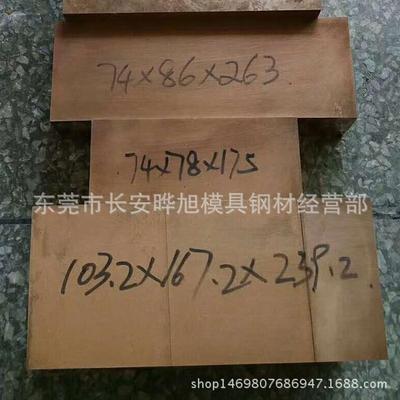 74×86×263.
74×78×175
东莞市长安晔旭模具钢材经营部
103.2×167.2×239.2
shop1469807686947.1688.com